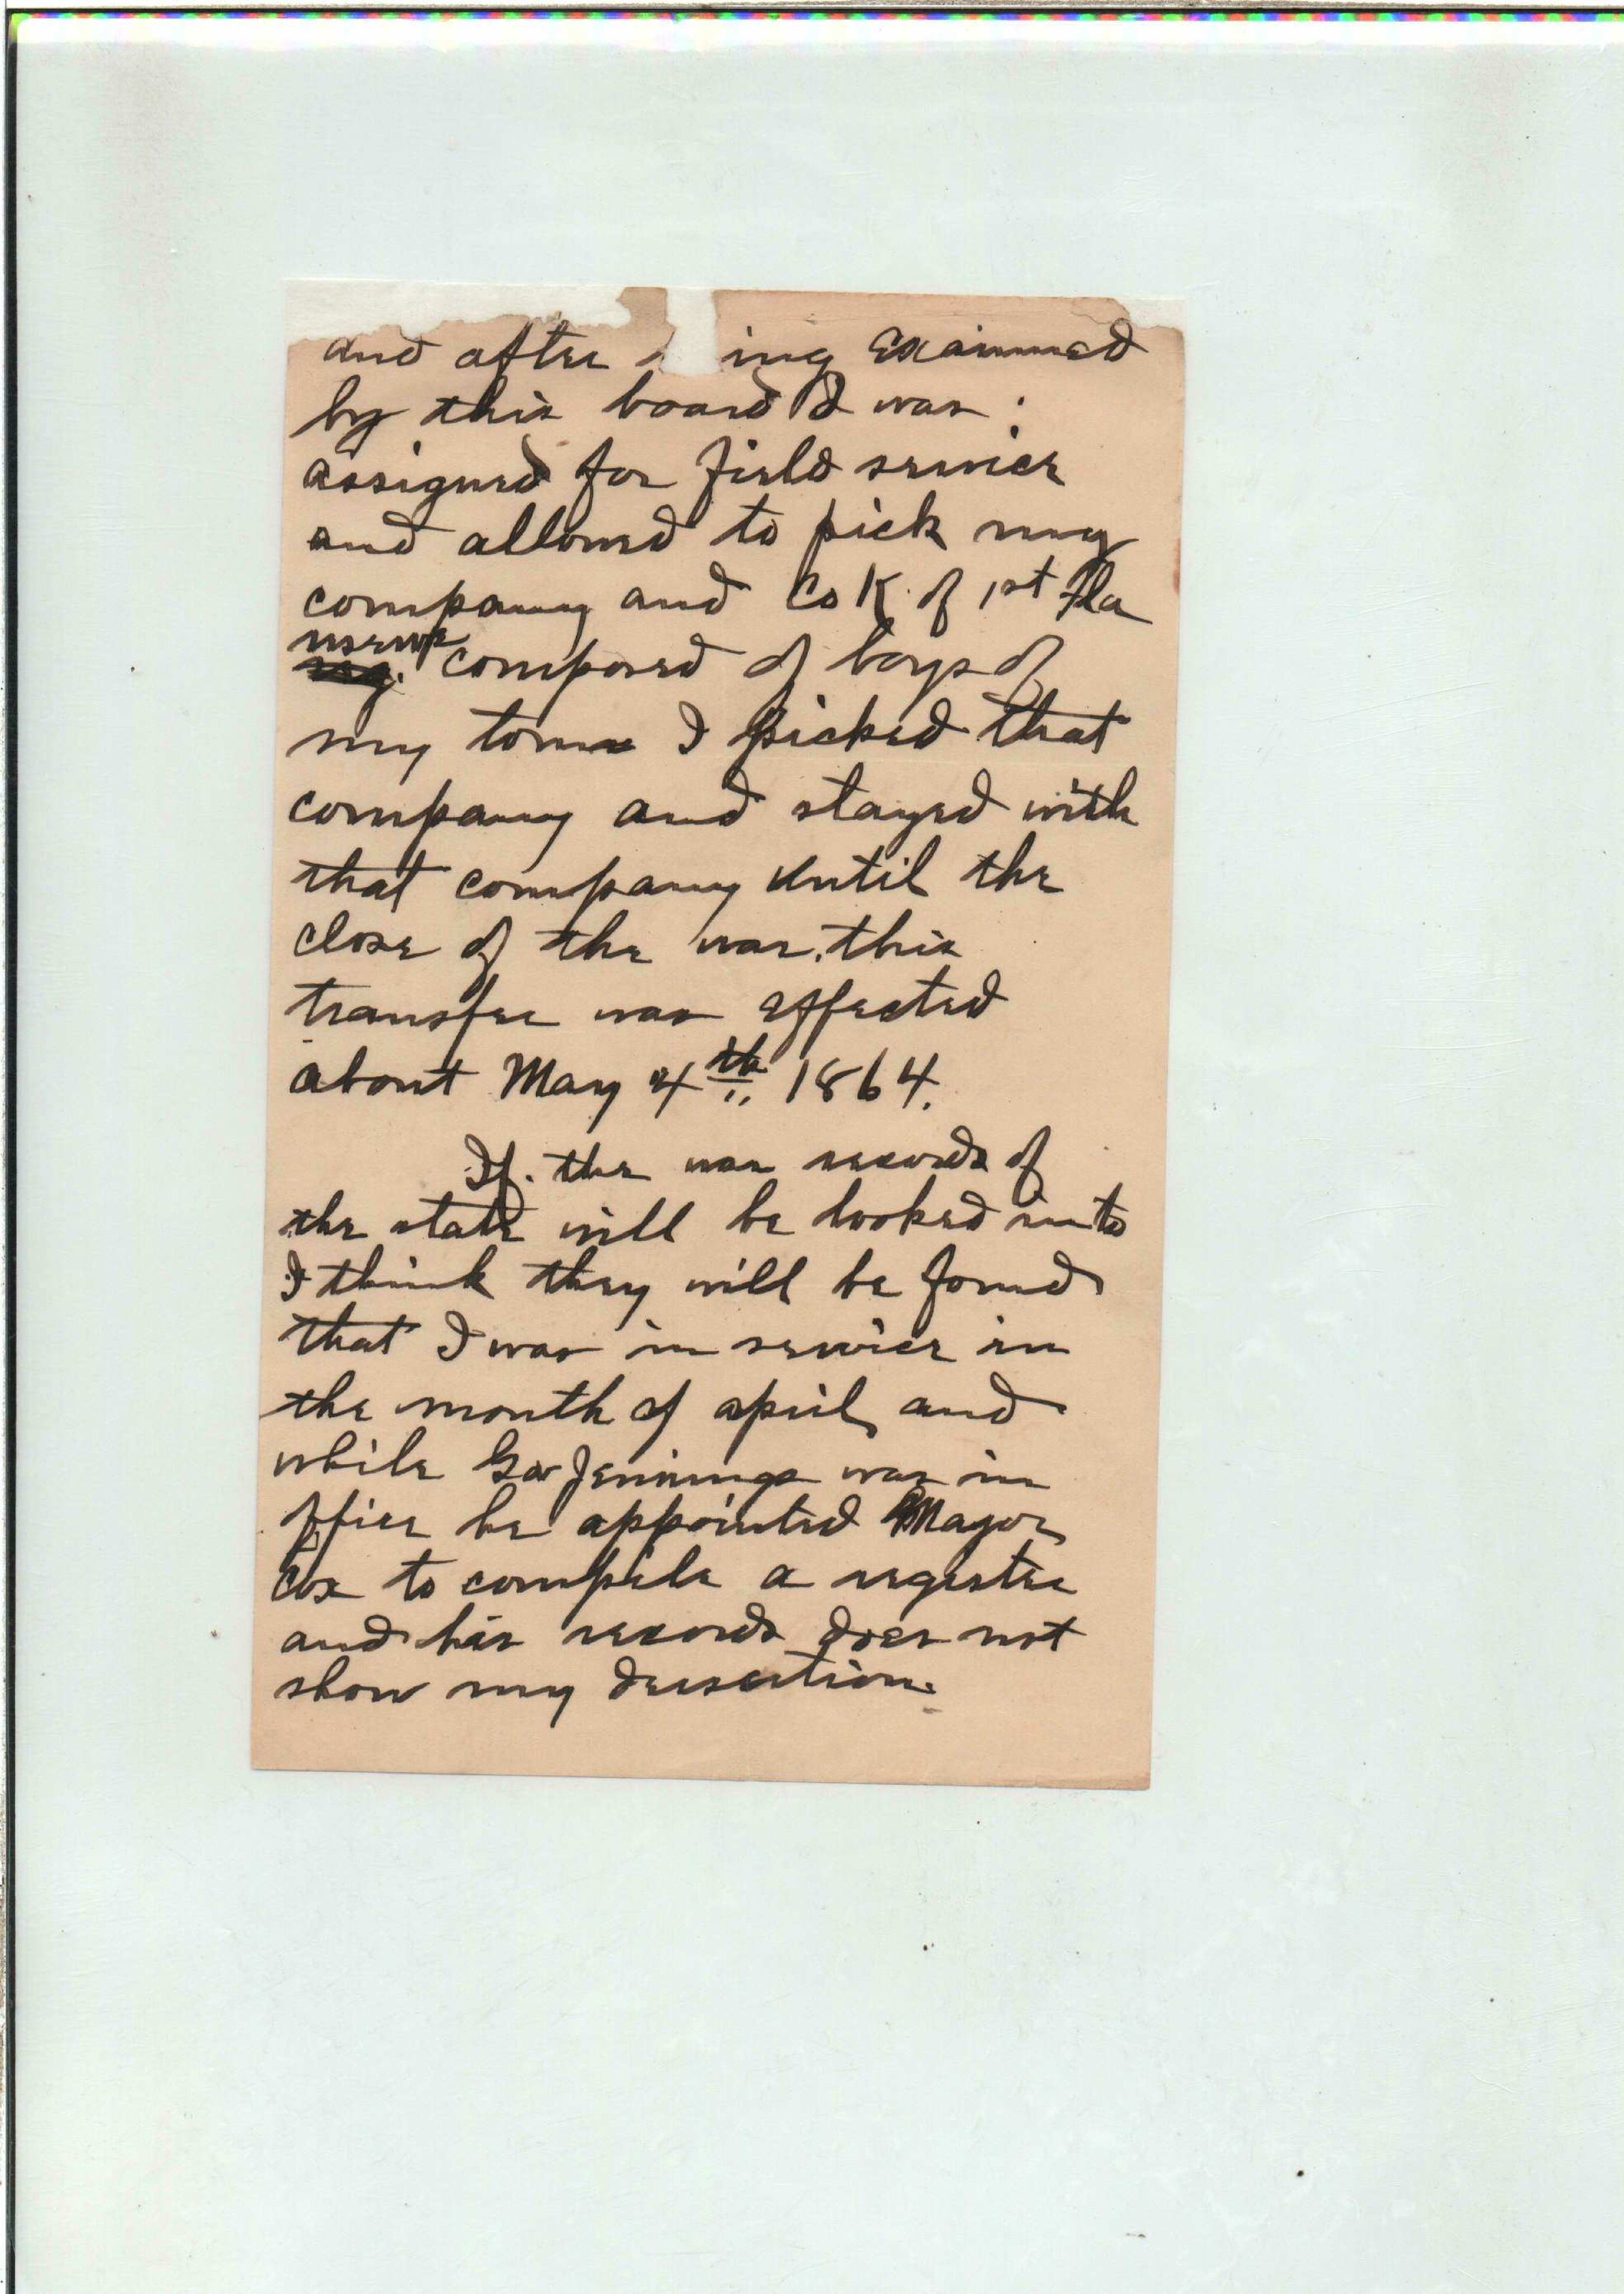 and after ing Examined
by this board I was
assigned for field service
and allowed to pick my
company and Co K. of 1st Fla
reserve
composed of boys of
my town I picked that
company and stayed with
that company until the
close of the war. this
transfer was effected
about May 4th 1864.
If. the war records of
the state will be looked into
I think they will be found
that I was in service in
the month of april and
while Gov Jennings was in
office he appointed Major
Cox to compile a register
and his records does not
show my desertion.